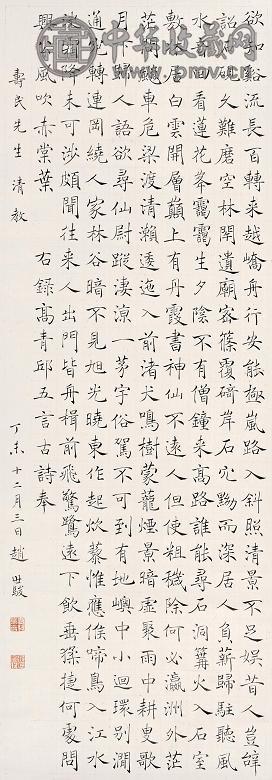 欲知谿流長百轉来越嶠舟行安能極嵐路入斜照清景不足娛昔人豈
碑久難磨空林閟遺廟客篠覆碕岸石宂黝而深居人負薪歸駐聽風
水看蓮花峯靄靄生夕陰不有僧鐘来高路誰能尋石洞篝火入石室
敷衣白雲開層巔上有丹霞書神仙不遠人但使粗穢除何必瀛洲外茫
茫車危梁渡清瀨透迤入前渚犬鳴樹蒙蘢煙景暗虛聚雨中耕叟歌
月歸人語欲尋仙尉蹤淒涼一茅宇俗駕不可到有地嶼中小迴環別澗
通宛轉連岡繞人家林谷暗不見旭光曉東作起炊藜惟應候啼鳥入江水
降未可涉頗聞往来人出門皆舟楫前飛驚鷺遠下飲垂猱捷何處問
興公風吹赤棠葉 右錄高青邱五言古詩奉
壽民先生清教 丁未十二月三日趙世駿
中华收藏网